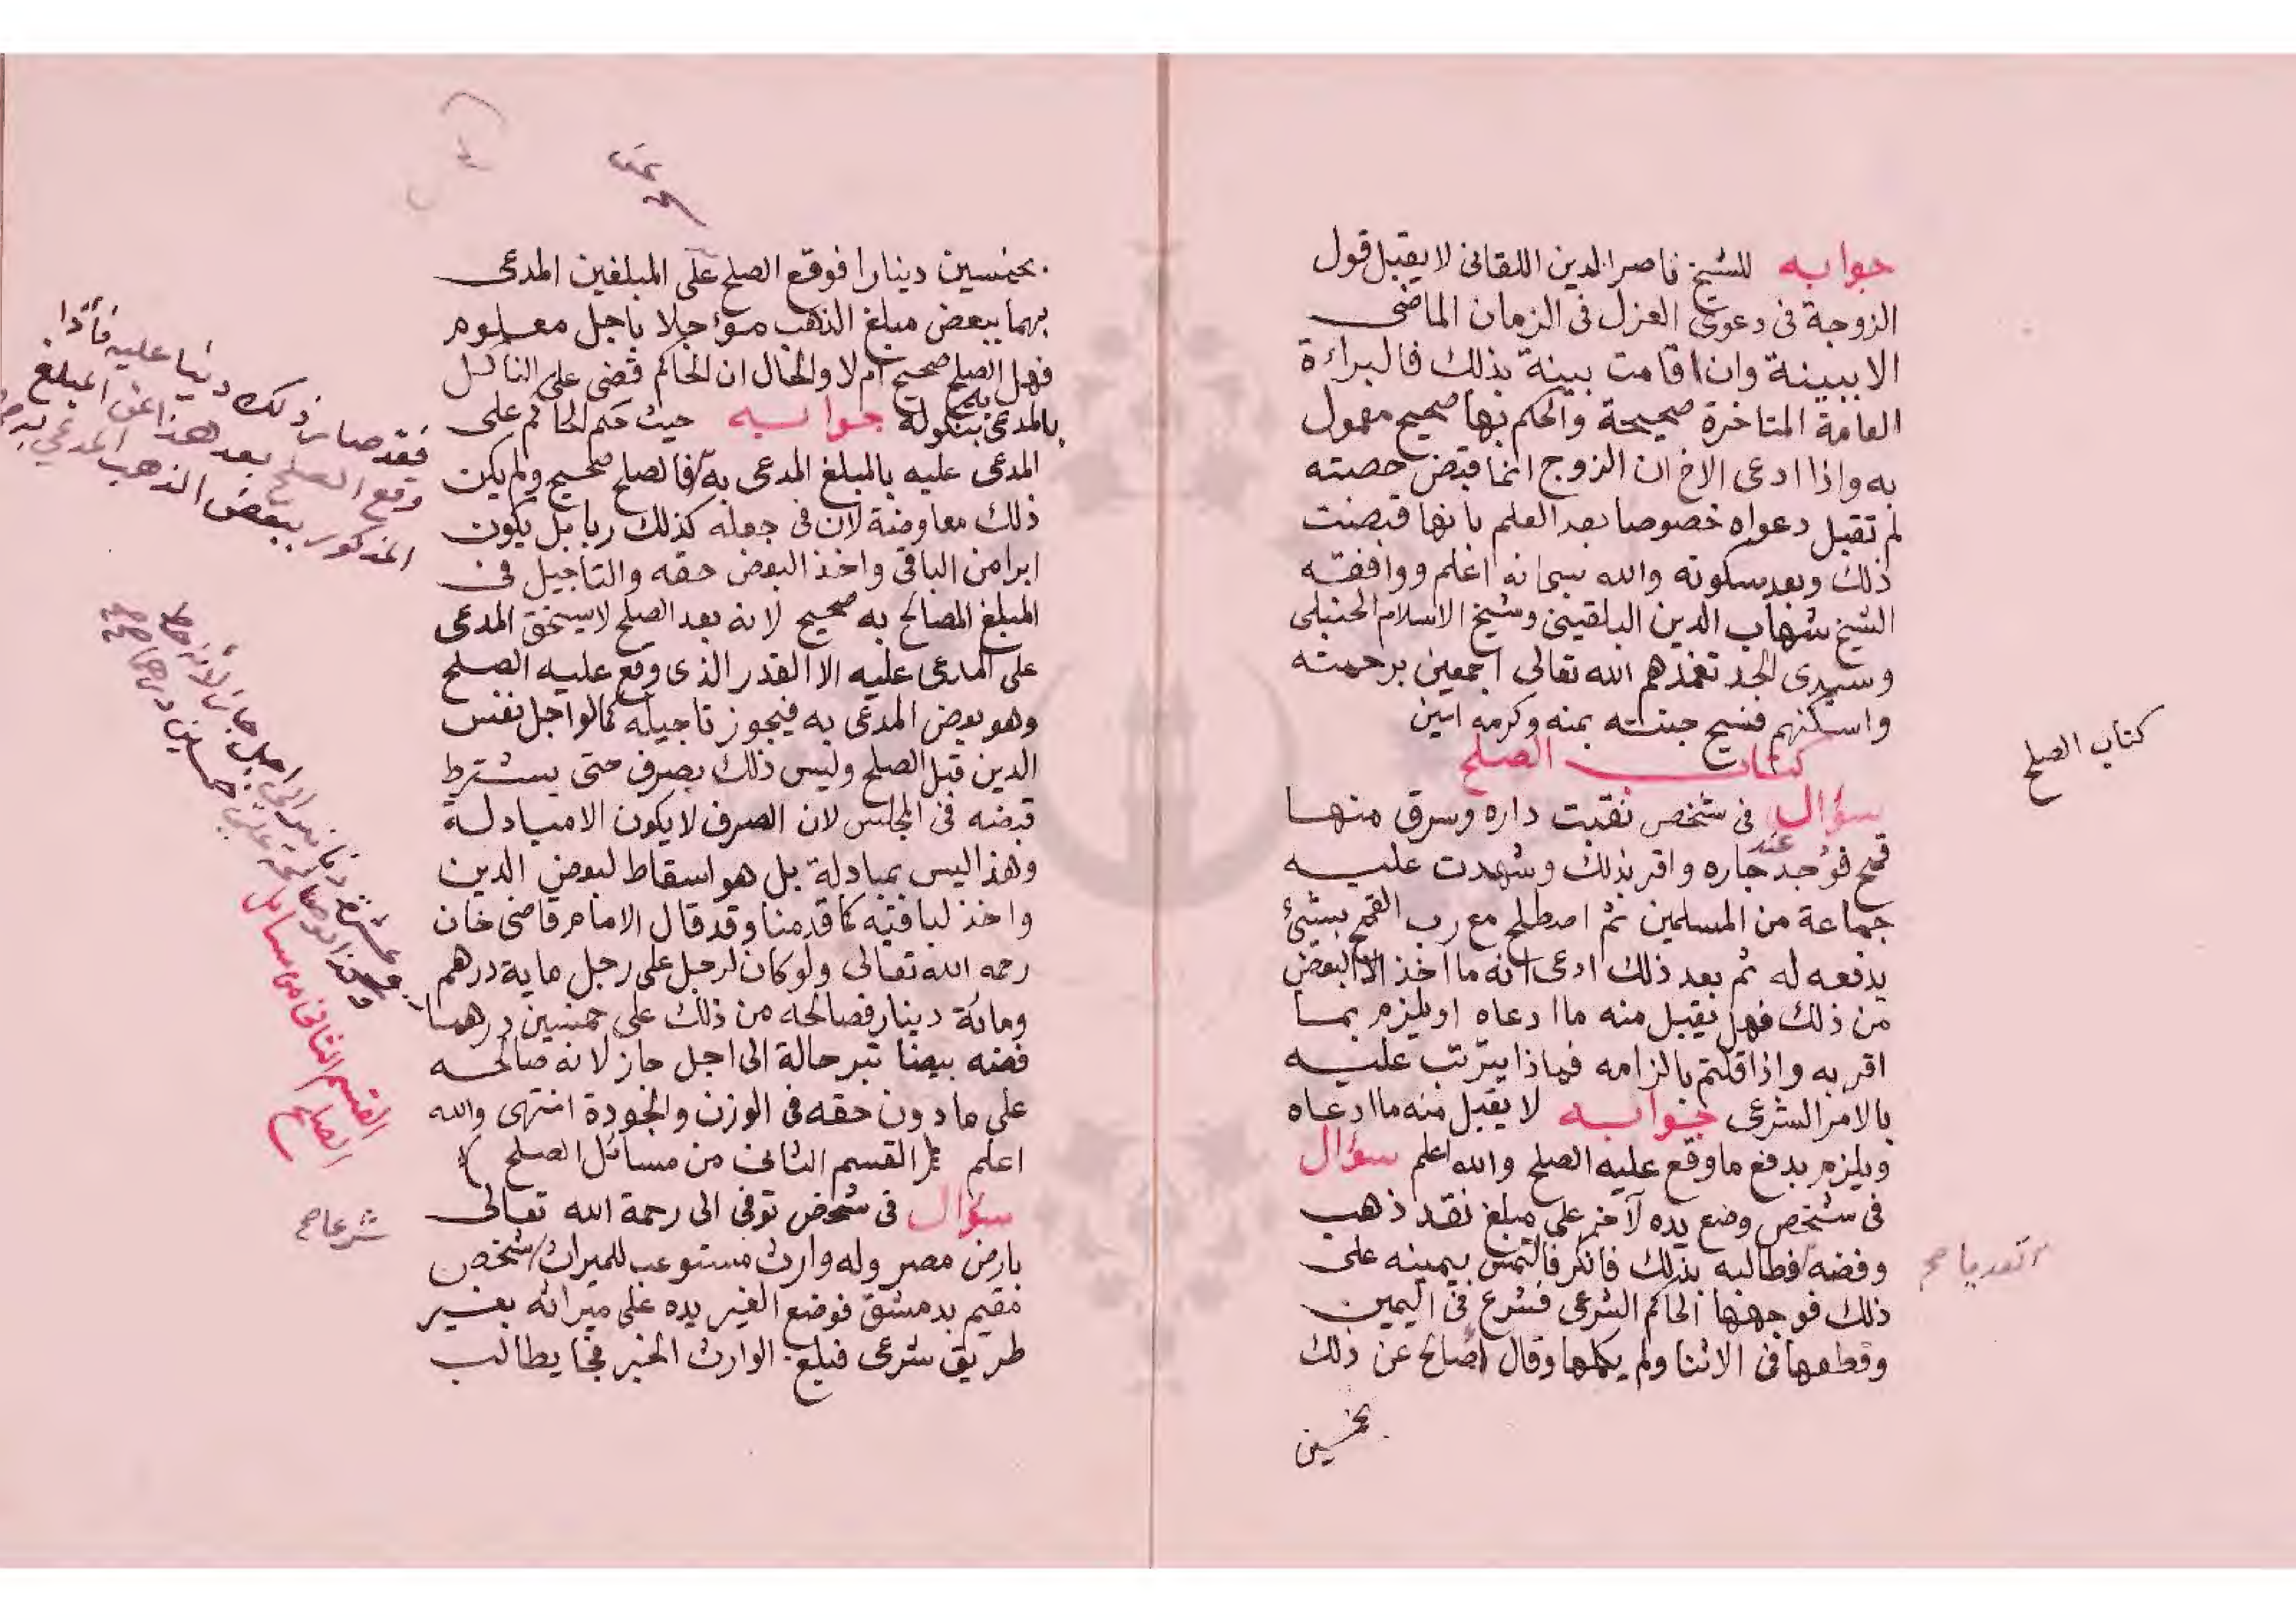 جوابه للشيخ ناصر الدين اللقانى لا يقبل قول
الزوجة فى دعوى العزل فى الزمان الماضى
الا ببينة وان اقامت بينة بذلك فالبراءة
العامة المتاخرة صحيحة والحكم بها صحيح معمول
به واذا ادعى الاخ ان الزوج انما قبض حصته
لم تقبل دعواه خصوصا بعد العلم بانها قبضت
ذلك وبعد سكوته والله سبحانه اعلم ووافقه
الشيخ شهاب الدين البلقينى وشيخ الاسلام الحنبلى
وسيدى الجد تغمذهم الله تعالى اجمعين برحمته
واسكنهم فسيح جنته بمنه وكرمه امين
كتاب الصلح
كتاب الصلح
سؤال فى شخص نقبت داره وسرق منها
قمح فوُجد عند جاره واقر بذلك وشهدت عليه
جماعة من المسلمين ثم اصطلح مع رب القمح بشئ
يدفعه له ثم بعد ذلك ادعى انه ما اخذ الا البعض
من ذلك فهل يقبل منه ما ادعاه او يلزم بما
اقر به واذا قلتم بالزامه فماذا يترتب عليه
بالامر الشرعى جوابه لا يقبل منه ما ادعاه
ويلزم بدفع ما وقع عليه الصلح والله اعلم سؤال
فى شخص وضع يده لآخر على مبلغ نقد ذهب
وفضه فطالبه بذلك فانكر فالتمس يمينه على
تعديا صح
ذلك فوجهها الحاكم الشرعى فشرع فى اليمين
وقطعها فى الاثنا ولم يكملها وقال اصالح عن ذلك
بخمسين
بخمسين دينارا فوقع الصلح على المبلغين المدعى
بهما ببعض مبلغ الذهب مؤجلا باجل معلوم
فهل الصلح صحيح ام لا والحال ان الحاكم قضى على الناكل
بالمدعى به بنكوله جوابه حيث حكم الحاكم على
المدعى عليه بالمبلغ المدعى به فالصلح صحيح ولم يكن
ذلك معاوضة لان فى جعله كذلك ربا بل يكون
ابرا من الباقى واخذ البعض حقه والتاجيل فى
المبلغ المصالح به صحيح لانه بعد الصلح لا يستحق المدعى
على المدعى عليه الا القدر الذى وقع عليه الصلح
وهو بعض المدعى به فيجوز تاجيله كما لو اجل نفس
الدين قبل الصلح وليس ذلك بصرف حتى يشترط
قبضه فى المجلس لان الصرف لا يكون الا مبادلة
وهذا ليس بمبادلة بل هو اسقاط لبعض الدين
واخذ لباقيه كما قدمنا وقد قال الامام قاضى خان
رحمه الله تعالى ولو كان لرجل على رجل ماية درهم
ومائة دينار فصالحه من ذلك على خمسين درهما
فضه بيضا تبر حالة الى اجل جاز لانه صالحه
على ما دون حقه فى الوزن والجودة انتهى والله
اعلم (القسم الثانى من مسائل الصلح)
سؤال فى شخص توفى الى رحمة الله تعالى
بارض مصر وله وارث مستوعب للميراث شخص
شرعا صح
مقيم بدمشق فوضع الغير يده على ميراثه بغير
طريق شرعى فبلغ الوارث الخبر فجا يطالب
فقد صار ذلك دينا عليه فاذا
وقع الصلح بعد هذا عن المبلغ
المذكور ببعض الذهب المدعى
القسم الثانى من مسائل
الصلح